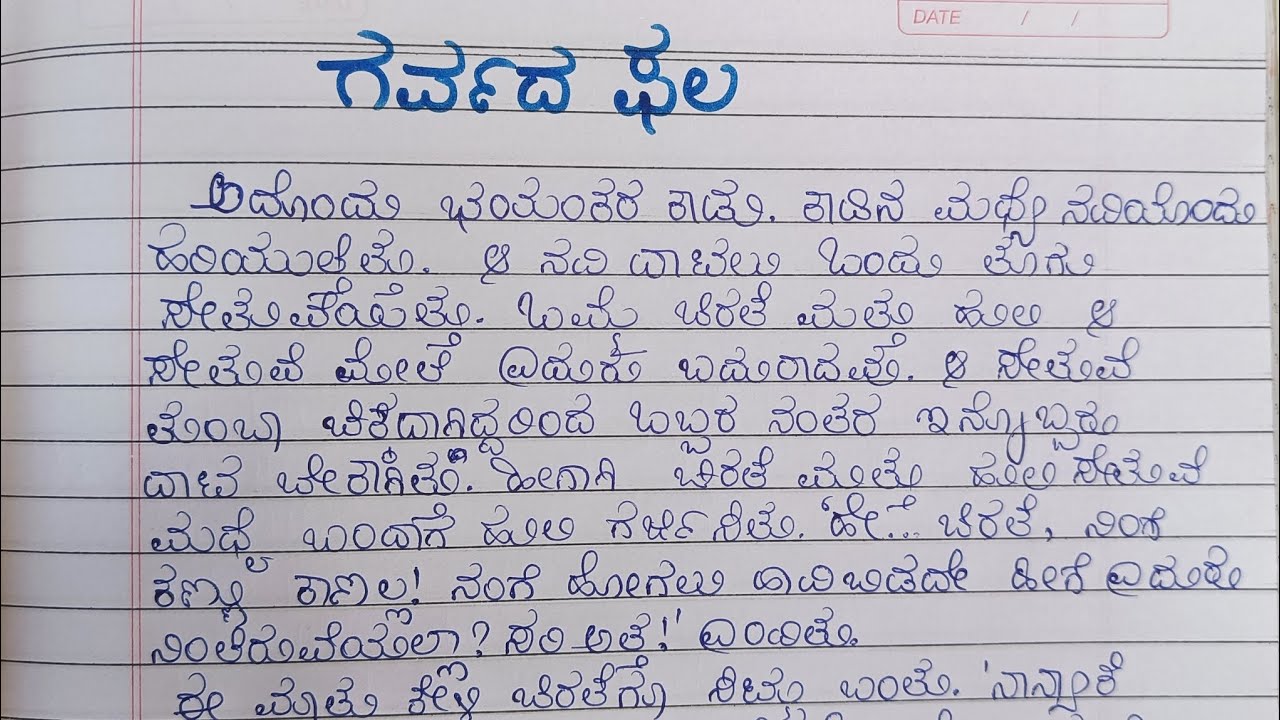 DATE / /
ಗರ್ವದ ಫಲ
ಅದೊಂದು ಭಯಂಕರ ಕಾಡು. ಕಾಡಿನ ಮಧ್ಯೆ ನದಿಯೊಂದು
ಹರಿಯುತಿತ್ತು. ಆ ನದಿ ದಾಟಲು ಒಂದು ತೂಗು
ಸೇತುವೆಯಿತ್ತು. ಒಮ್ಮೆ ಚಿರತೆ ಮತ್ತು ಹುಲಿ ಆ
ಸೇತುವೆ ಮೇಲೆ ಎದುರು ಬದುರಾದವು. ಆ ಸೇತುವೆ
ತುಂಬಾ ಚಿಕ್ಕದಾಗಿದ್ದರಿಂದ ಒಬ್ಬರ ನಂತರ ಇನ್ನೊಬ್ಬರು
ದಾಟ ಬೇಕಾಗಿತ್ತು. ಹೀಗಾಗಿ ಚಿರತೆ ಮತ್ತು ಹುಲಿ ಸೇತುವೆ
ಮಧ್ಯೆ ಬಂದಾಗ ಹುಲಿ ಗರ್ಜಿಸಿತು. 'ಹೇ... ಚಿರತೆ, ನಿಂಗೆ
ಕಣ್ಣು ಕಾಣಲ್ಲ! ನಂಗೆ ಹೋಗಲು ದಾರಿ ಬಿಡದೇ ಹೀಗೆ ಎದುರೇ
ನಿಂತಿರುವೆಯಲ್ಲಾ? ಸರಿ ಅತ್ತ!' ಎಂದಿತು.
ಈ ಮಾತು ಕೇಳಿ ಚಿರತೆಗೂ ಸಿಟ್ಟು ಬಂತು. 'ನಾನ್ಯಾಕೆ